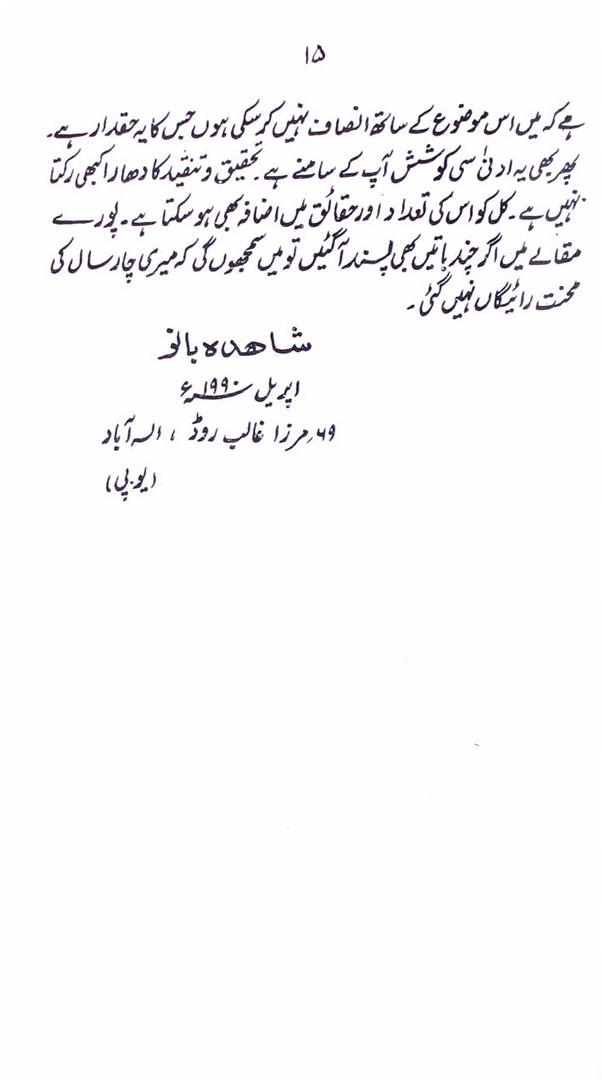 ۱۵
ہے کہ میں اس موضوع کے ساتھ انصاف نہیں کر سکی ہوں جس کا یہ حقدار ہے۔
پھر بھی یہ ادنیٰ سی کوشش آپ کے سامنے ہے۔ تحقیق و تنقید کا دھارا کبھی رکتا
نہیں ہے۔ کل کو اس کی تعداد اور حقائق میں اضافہ بھی ہو سکتا ہے۔ پورے
مقالے میں اگر چند باتیں بھی پسند آگئیں تو میں سمجھوں گی کہ میری چار سال کی
محنت رائیگاں نہیں گئی۔
شاھدہ بانو
اپریل ۱۹۹۰ء
۶۹؍مرزا غالب روڈ ، الہ آباد
(یو۔پی)